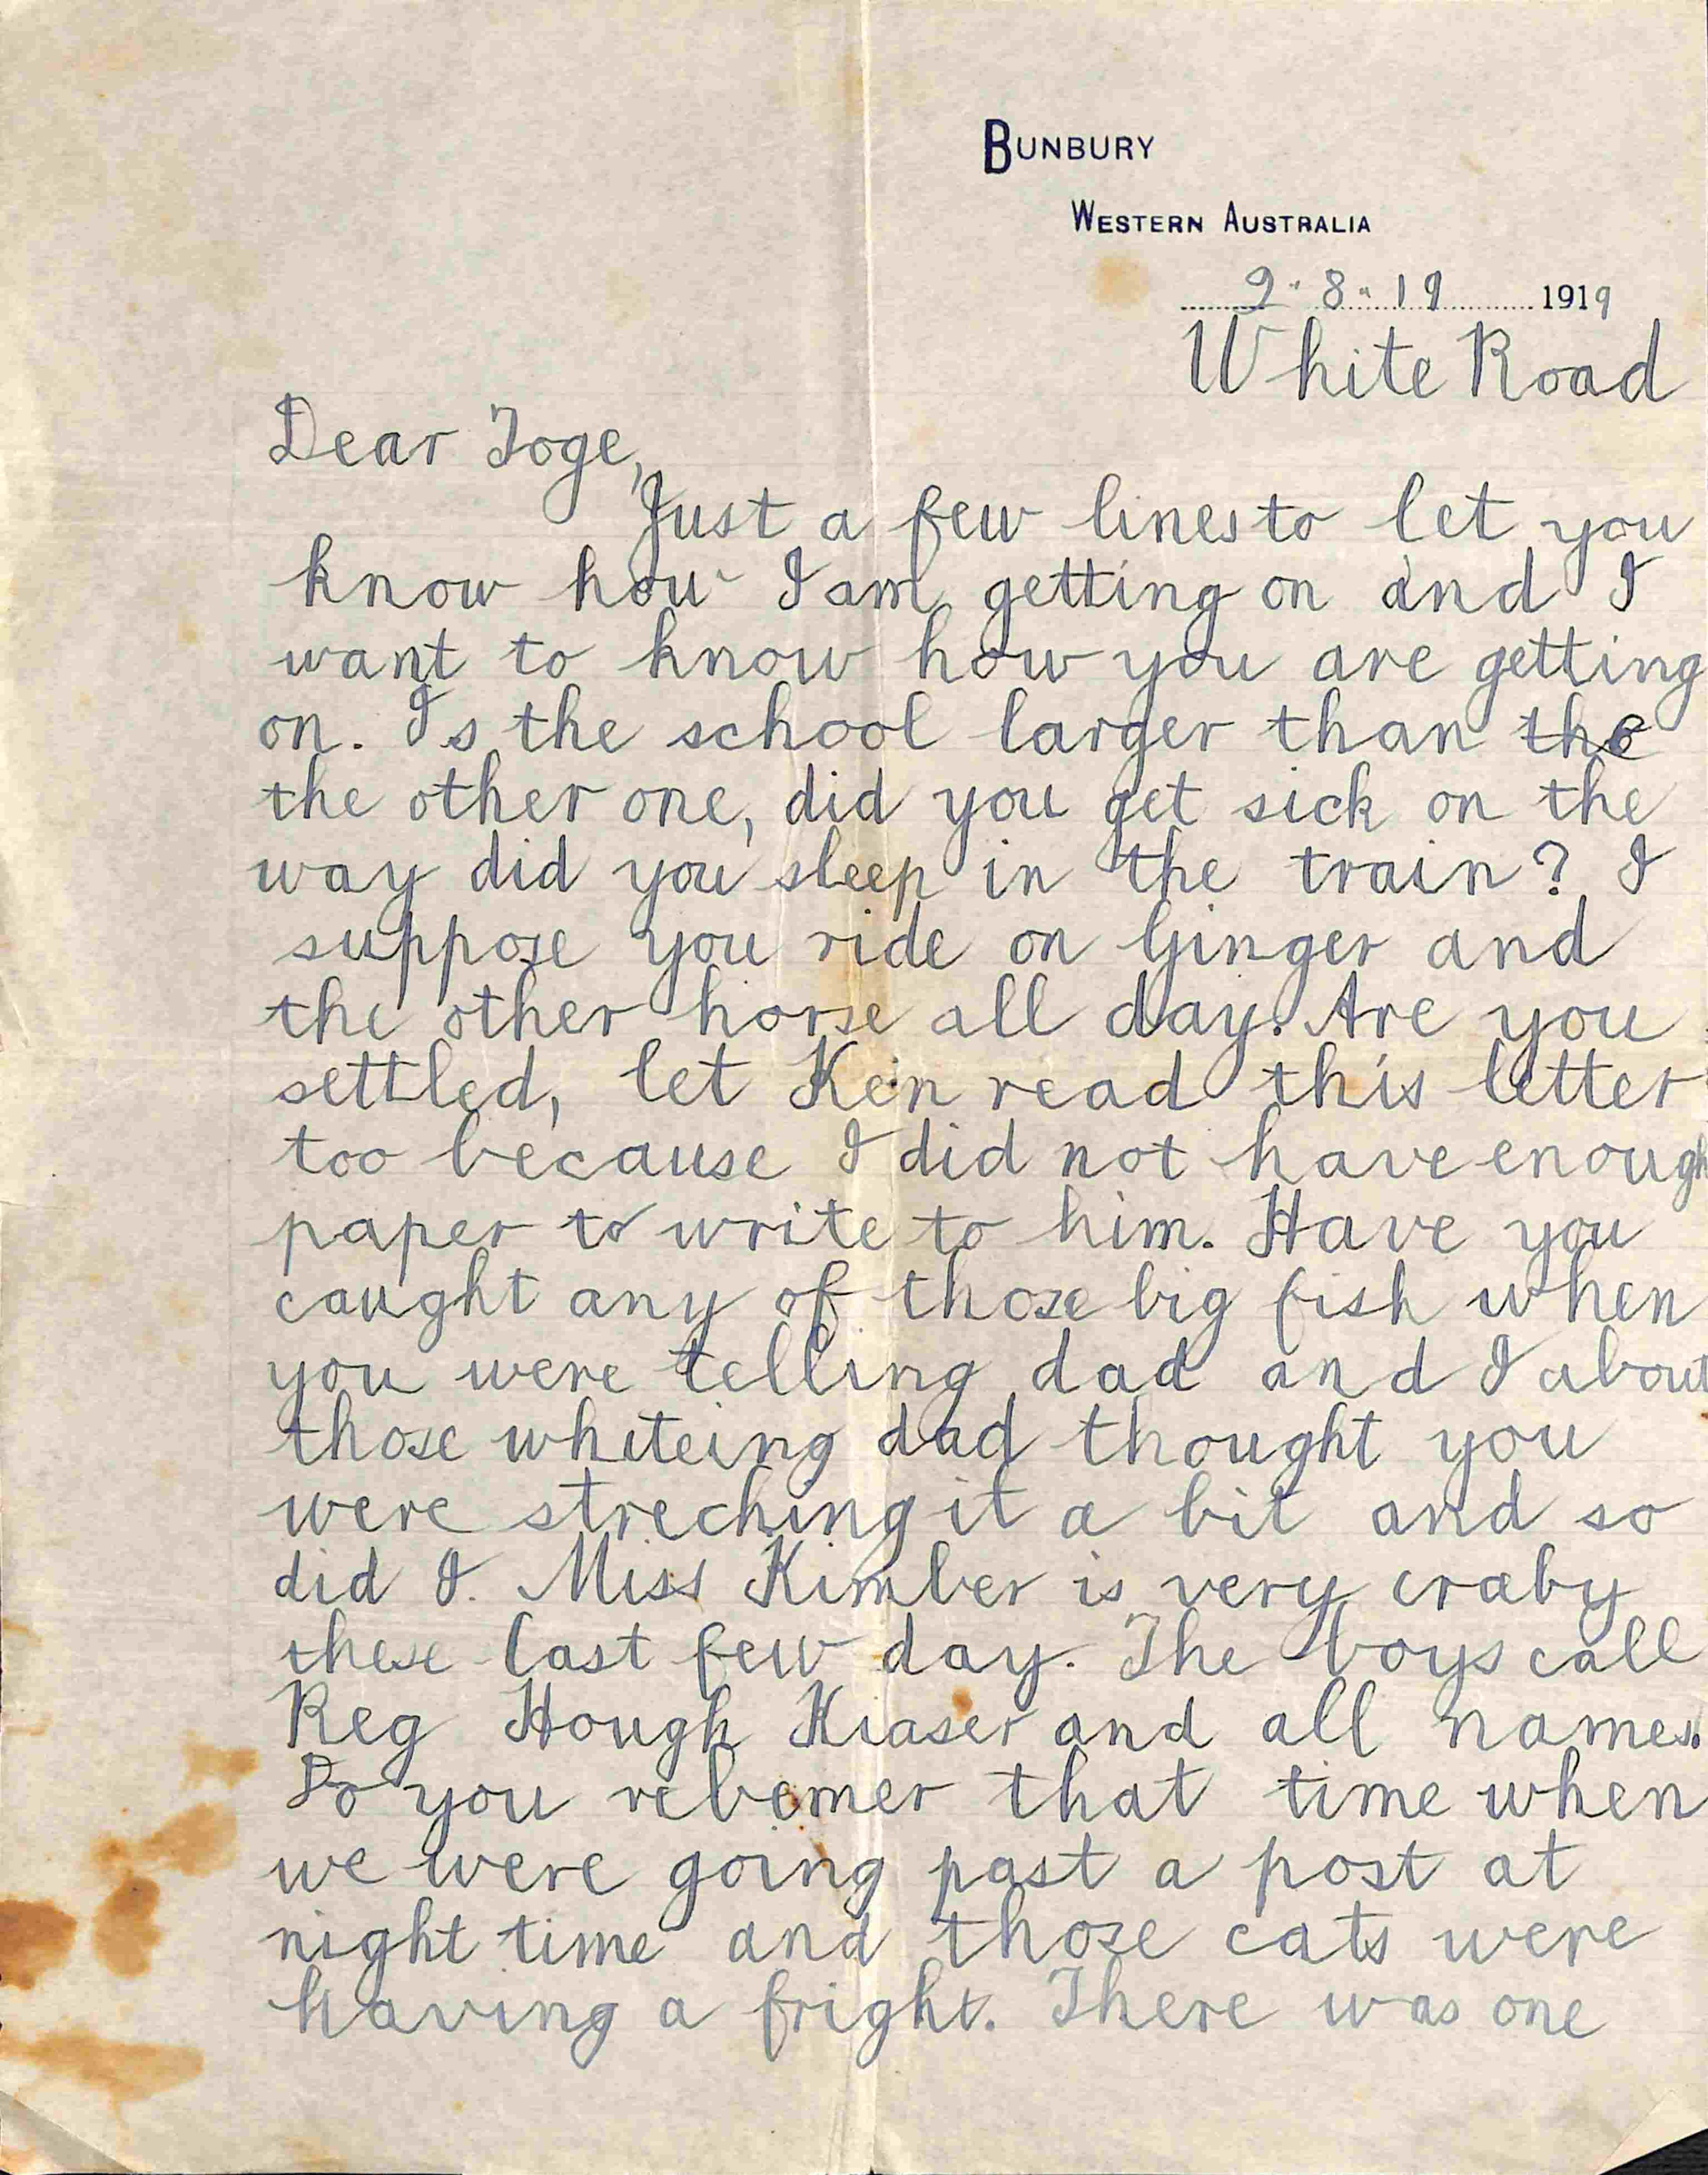 BUNBURY
WESTERN AUSTRALIA
9.8.19 1919
White Road
Dear Toge,
Just a few lines to let you
know how I am getting on and I
want to know how you are getting
on. Is the school larger than the
the other one, did you get sick on the
way did you sleep in the train? I
suppose you ride on Ginger and
the other horse all day. Are you
settled, let Ken read this letter
too because I did not have enough
paper to write to him. Have you
caught any of those big fish when
you were telling dad and I about
those whiteing dad thought you
were streching it a bit and so
did I. Miss Kimber is very craby
these last few day. The boys call
Reg Hough Kiaser and all names.
Do you rebemer that time when
we were going past a post at
night time and those cats were
having a fright. There was one